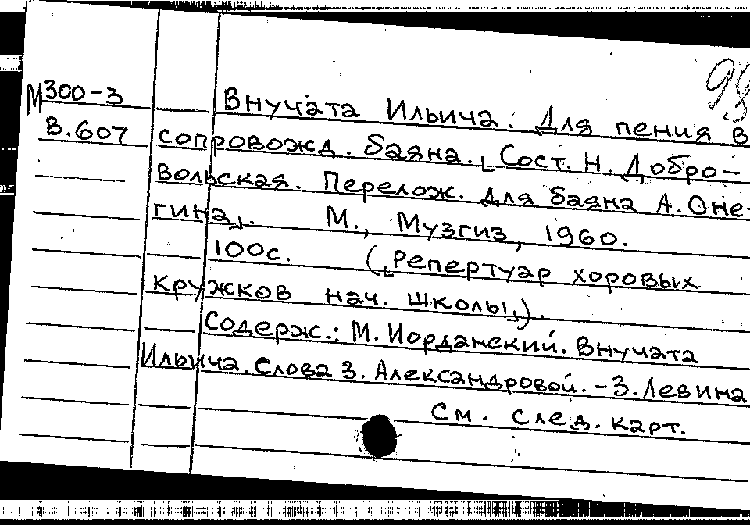 99
М300-3 Внучата Ильича. Для пения в
В.607 сопровожд. баяна. [Сост. Н. Добро-
вольская. Перелож. для баяна А. Оне-
гина]. М., Музгиз, 1960.
100с. ([Репертуар хоровых
кружков нач. школы]).
Содерж.: М. Иорданский. Внучата
Ильича. Слова З. Александровой. - З. Левина
См. след. карт.